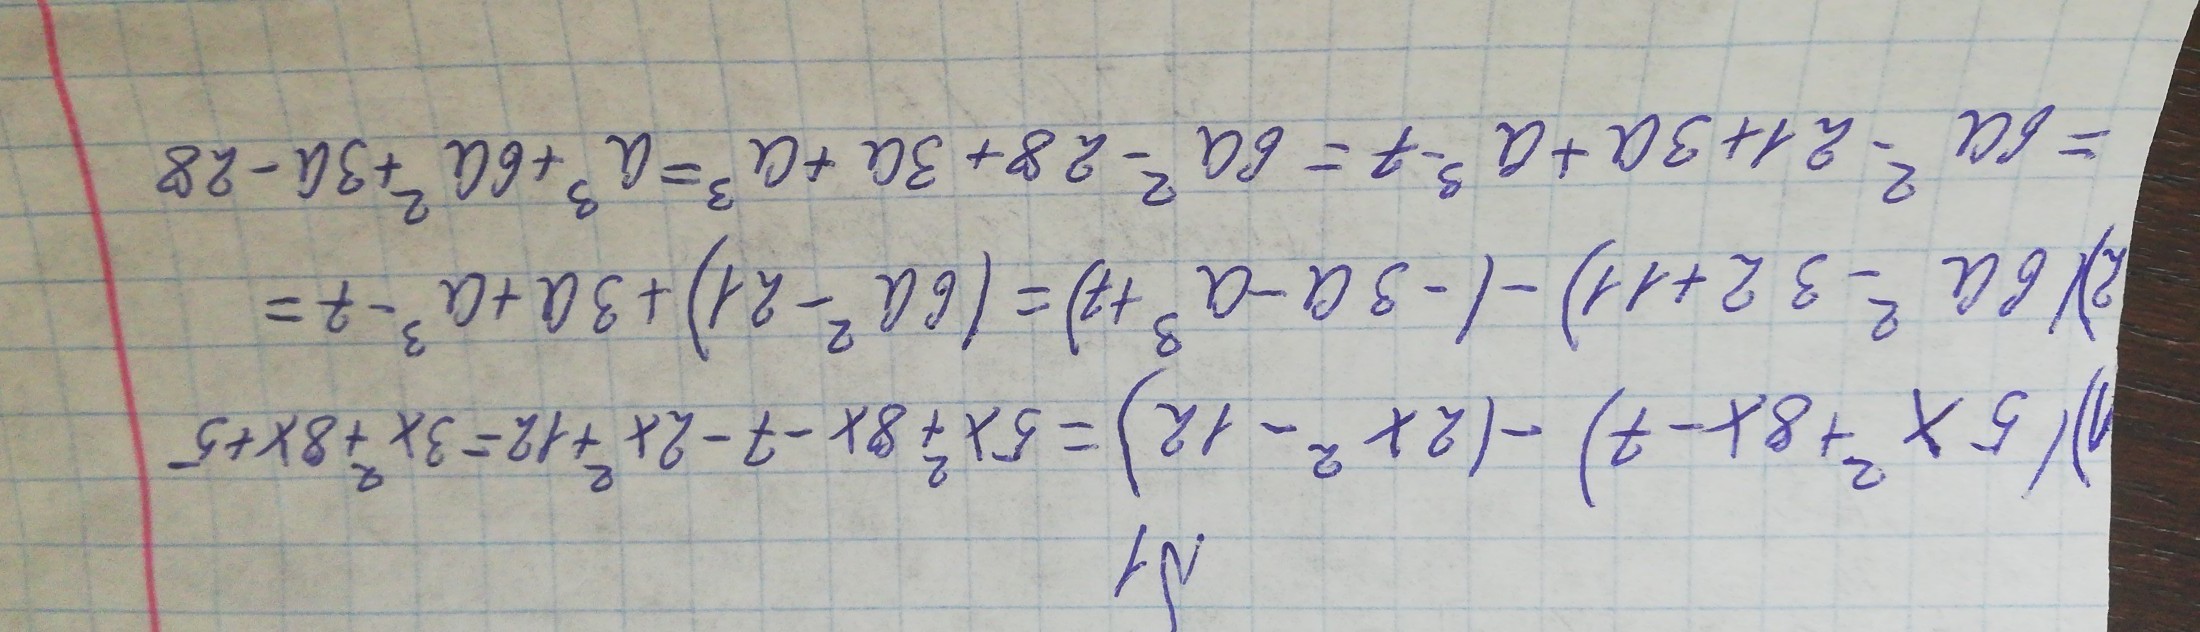 №1
1) (5x²+8x-7)-(2x²-12)=5x²+8x-7-2x²+12=3x²+8x+5
2) (6a²-32+11)-(-3a-a³+7)=(6a²-21)+3a+a³-7=
=6a²-21+3a+a³-7=6a²-28+3a+a³=a³+6a²+3a-28